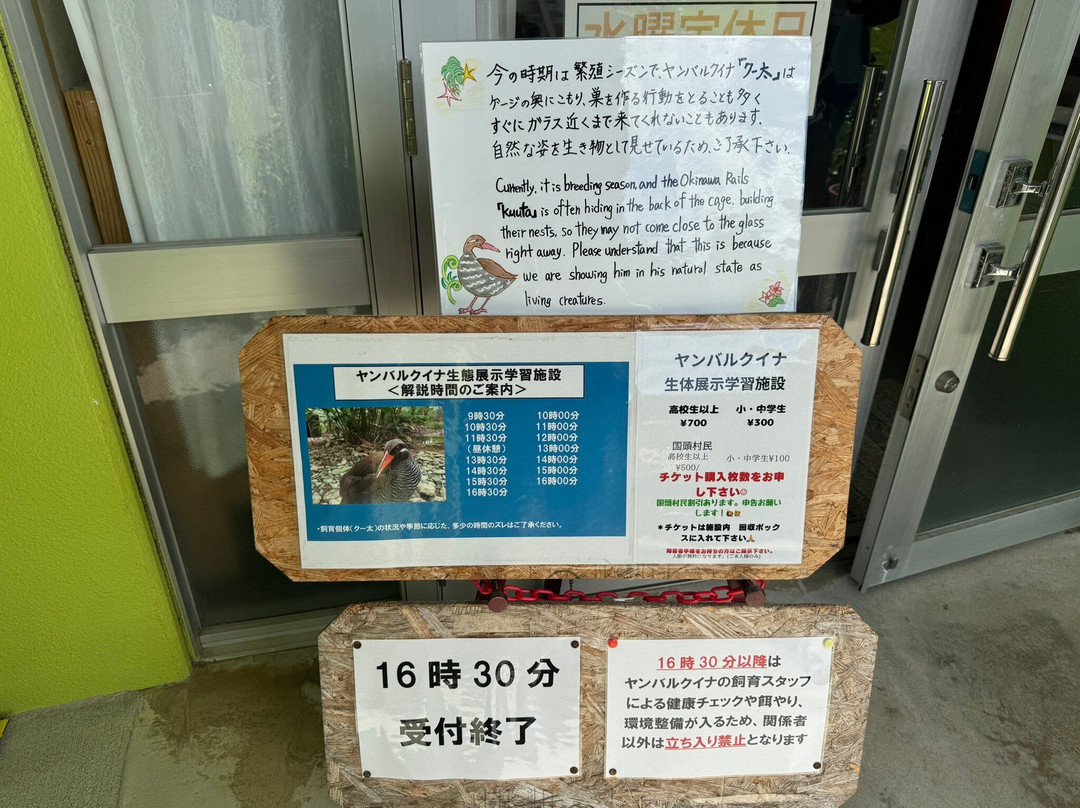 水曜定休日
今の時期は繁殖シーズンで、ヤンバルクイナ『クー太』は
ケージの奥にこもり、巣を作る行動をとることも多く
すぐにガラス近くまで来てくれないこともあります。
自然な姿を生き物として見せているため、ご了承下さい。
Currently, it is breeding season, and the Okinawa Rails
『Kuuta』 is often hiding in the back of the cage, building
their nests, so they may not come close to the glass
right away. Please understand that this is because
we are showing him in his natural state as
living creatures.
ヤンバルクイナ生態展示学習施設
<解説時間のご案内>
9時30分 10時00分
10時30分 11時00分
11時30分 12時00分
(昼休憩) 13時00分
13時30分 14時00分
14時30分 15時00分
15時30分 16時00分
16時30分
・飼育個体(クー太)の状況や季節に応じた、多少の時間のズレはご了承ください。
ヤンバルクイナ
生体展示学習施設
高校生以上 小・中学生
¥700 ¥300
国頭村民
高校生以上 小・中学生¥100
¥500/
チケット購入枚数をお申
し下さい☺
国頭村民割引あります。申告お願い
します!
*チケットは施設内 回収ボック
スに入れて下さい🙏
障害者手帳をお持ちの方はご提示下さい。
入館が無料になります。(ご本人様のみ)
16時30分
受付終了
16時30分以降は
ヤンバルクイナの飼育スタッフ
による健康チェックや餌やり、
環境整備が入るため、関係者
以外は立ち入り禁止となります